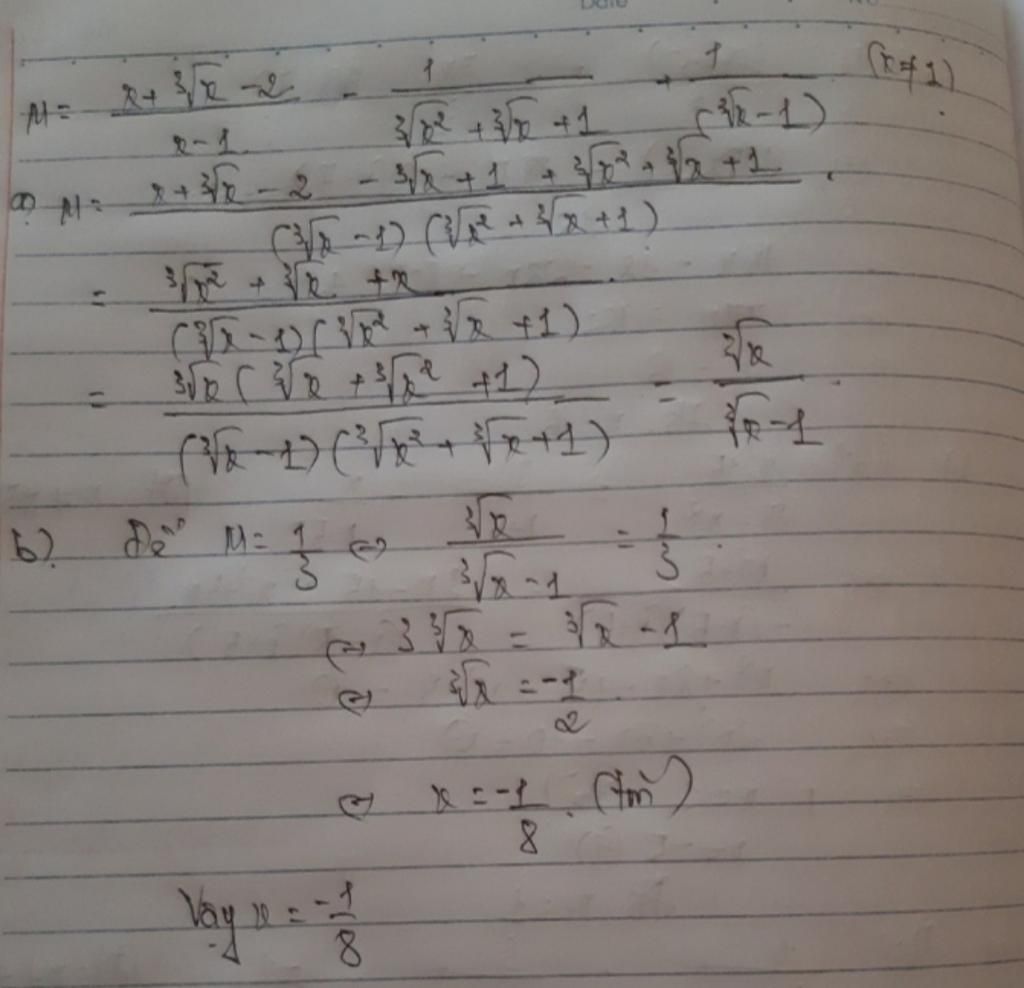 Date
M = \frac{x + \sqrt[3]{x} - 2}{x - 1} - \frac{1}{\sqrt[3]{x^2} + \sqrt[3]{x} + 1} + \frac{1}{(\sqrt[3]{x} - 1)} (x ≠ 1)
a) M = \frac{x + \sqrt[3]{x} - 2 - \sqrt[3]{x} + 1 + \sqrt[3]{x^2} + \sqrt[3]{x} + 1}{(\sqrt[3]{x} - 1)(\sqrt[3]{x^2} + \sqrt[3]{x} + 1)}
= \frac{\sqrt[3]{x^2} + \sqrt[3]{x} + x}{(\sqrt[3]{x} - 1)(\sqrt[3]{x^2} + \sqrt[3]{x} + 1)}
= \frac{\sqrt[3]{x}(\sqrt[3]{x} + \sqrt[3]{x^2} + 1)}{(\sqrt[3]{x} - 1)(\sqrt[3]{x^2} + \sqrt[3]{x} + 1)} = \frac{\sqrt[3]{x}}{\sqrt[3]{x} - 1}.
b). Để M = \frac{1}{3} ⇔ \frac{\sqrt[3]{x}}{\sqrt[3]{x} - 1} = \frac{1}{3}.
⇔ 3\sqrt[3]{x} = \sqrt[3]{x} - 1
⇔ \sqrt[3]{x} = \frac{-1}{2}
⇔ x = \frac{-1}{8}. (tm)
Vậy x = \frac{-1}{8}